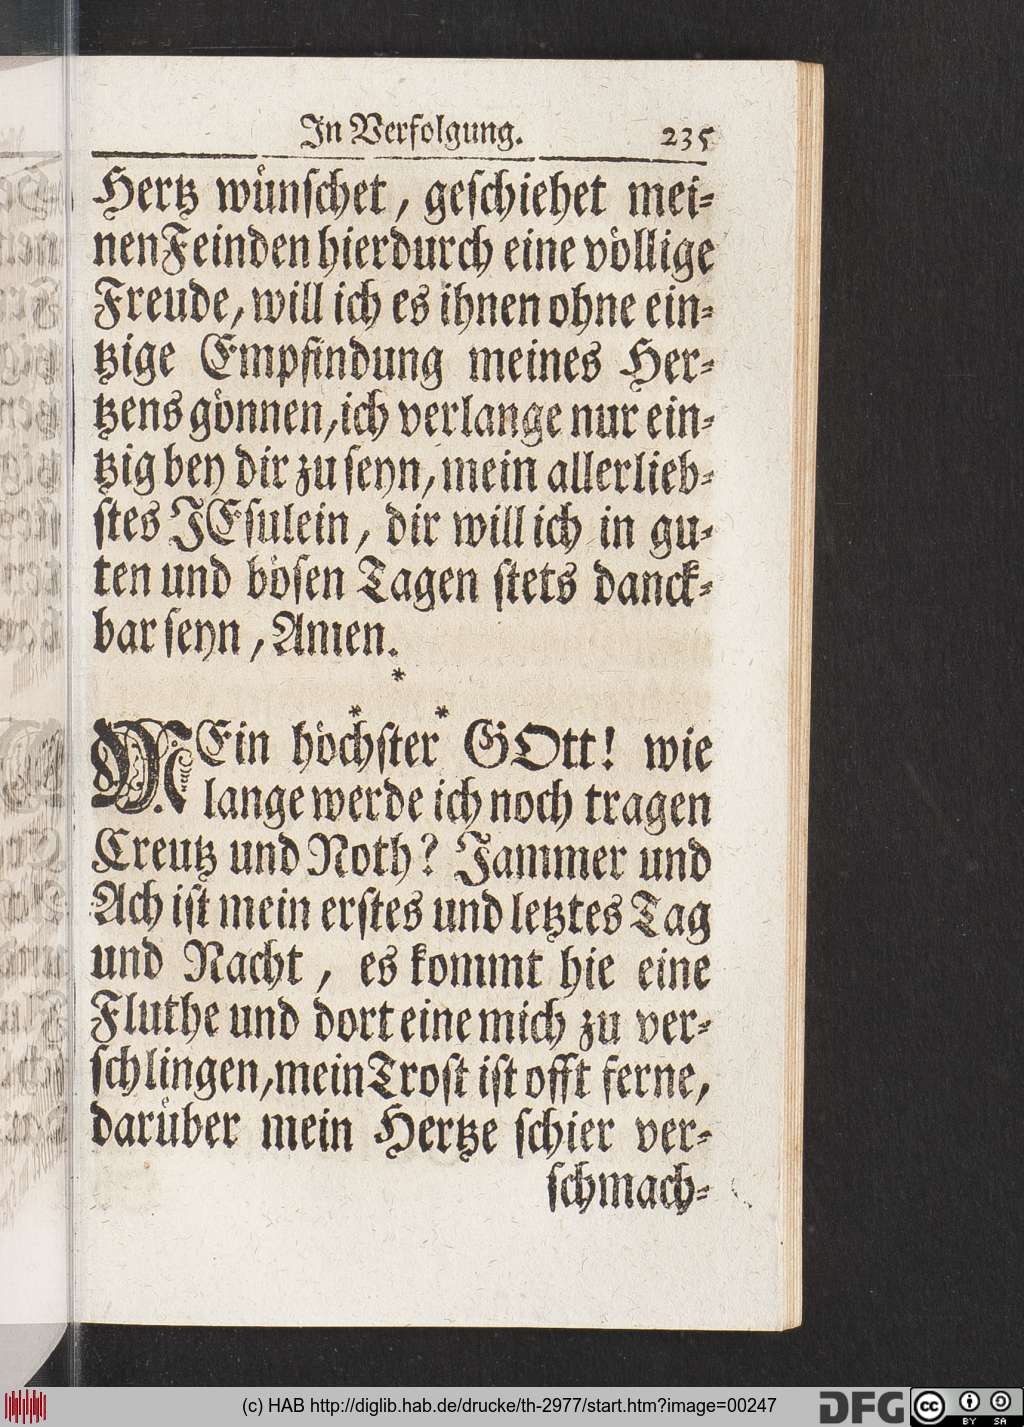 In Verfolgung. 235
Hertz wünschet, geschiehet mei-
nen Feinden hierdurch eine völlige
Freude, will ich es ihnen ohne ein-
tzige Empfindung meines Her-
tzens gönnen, ich verlange nur ein-
tzig bey dir zu seyn, mein allerlieb-
stes JEsulein, dir will ich in gu-
ten und bösen Tagen stets danck-
bar seyn, Amen.
*
* *
MEin höchster GOtt! wie
lange werde ich noch tragen
Creutz und Noth? Jammer und
Ach ist mein erstes und letztes Tag
und Nacht, es kommt hie eine
Fluthe und dort eine mich zu ver-
schlingen, mein Trost ist offt ferne,
darüber mein Hertze schier ver-
schmach-
(c) HAB http://diglib.hab.de/drucke/th-2977/start.htm?image=00247
DFG cc BY SA